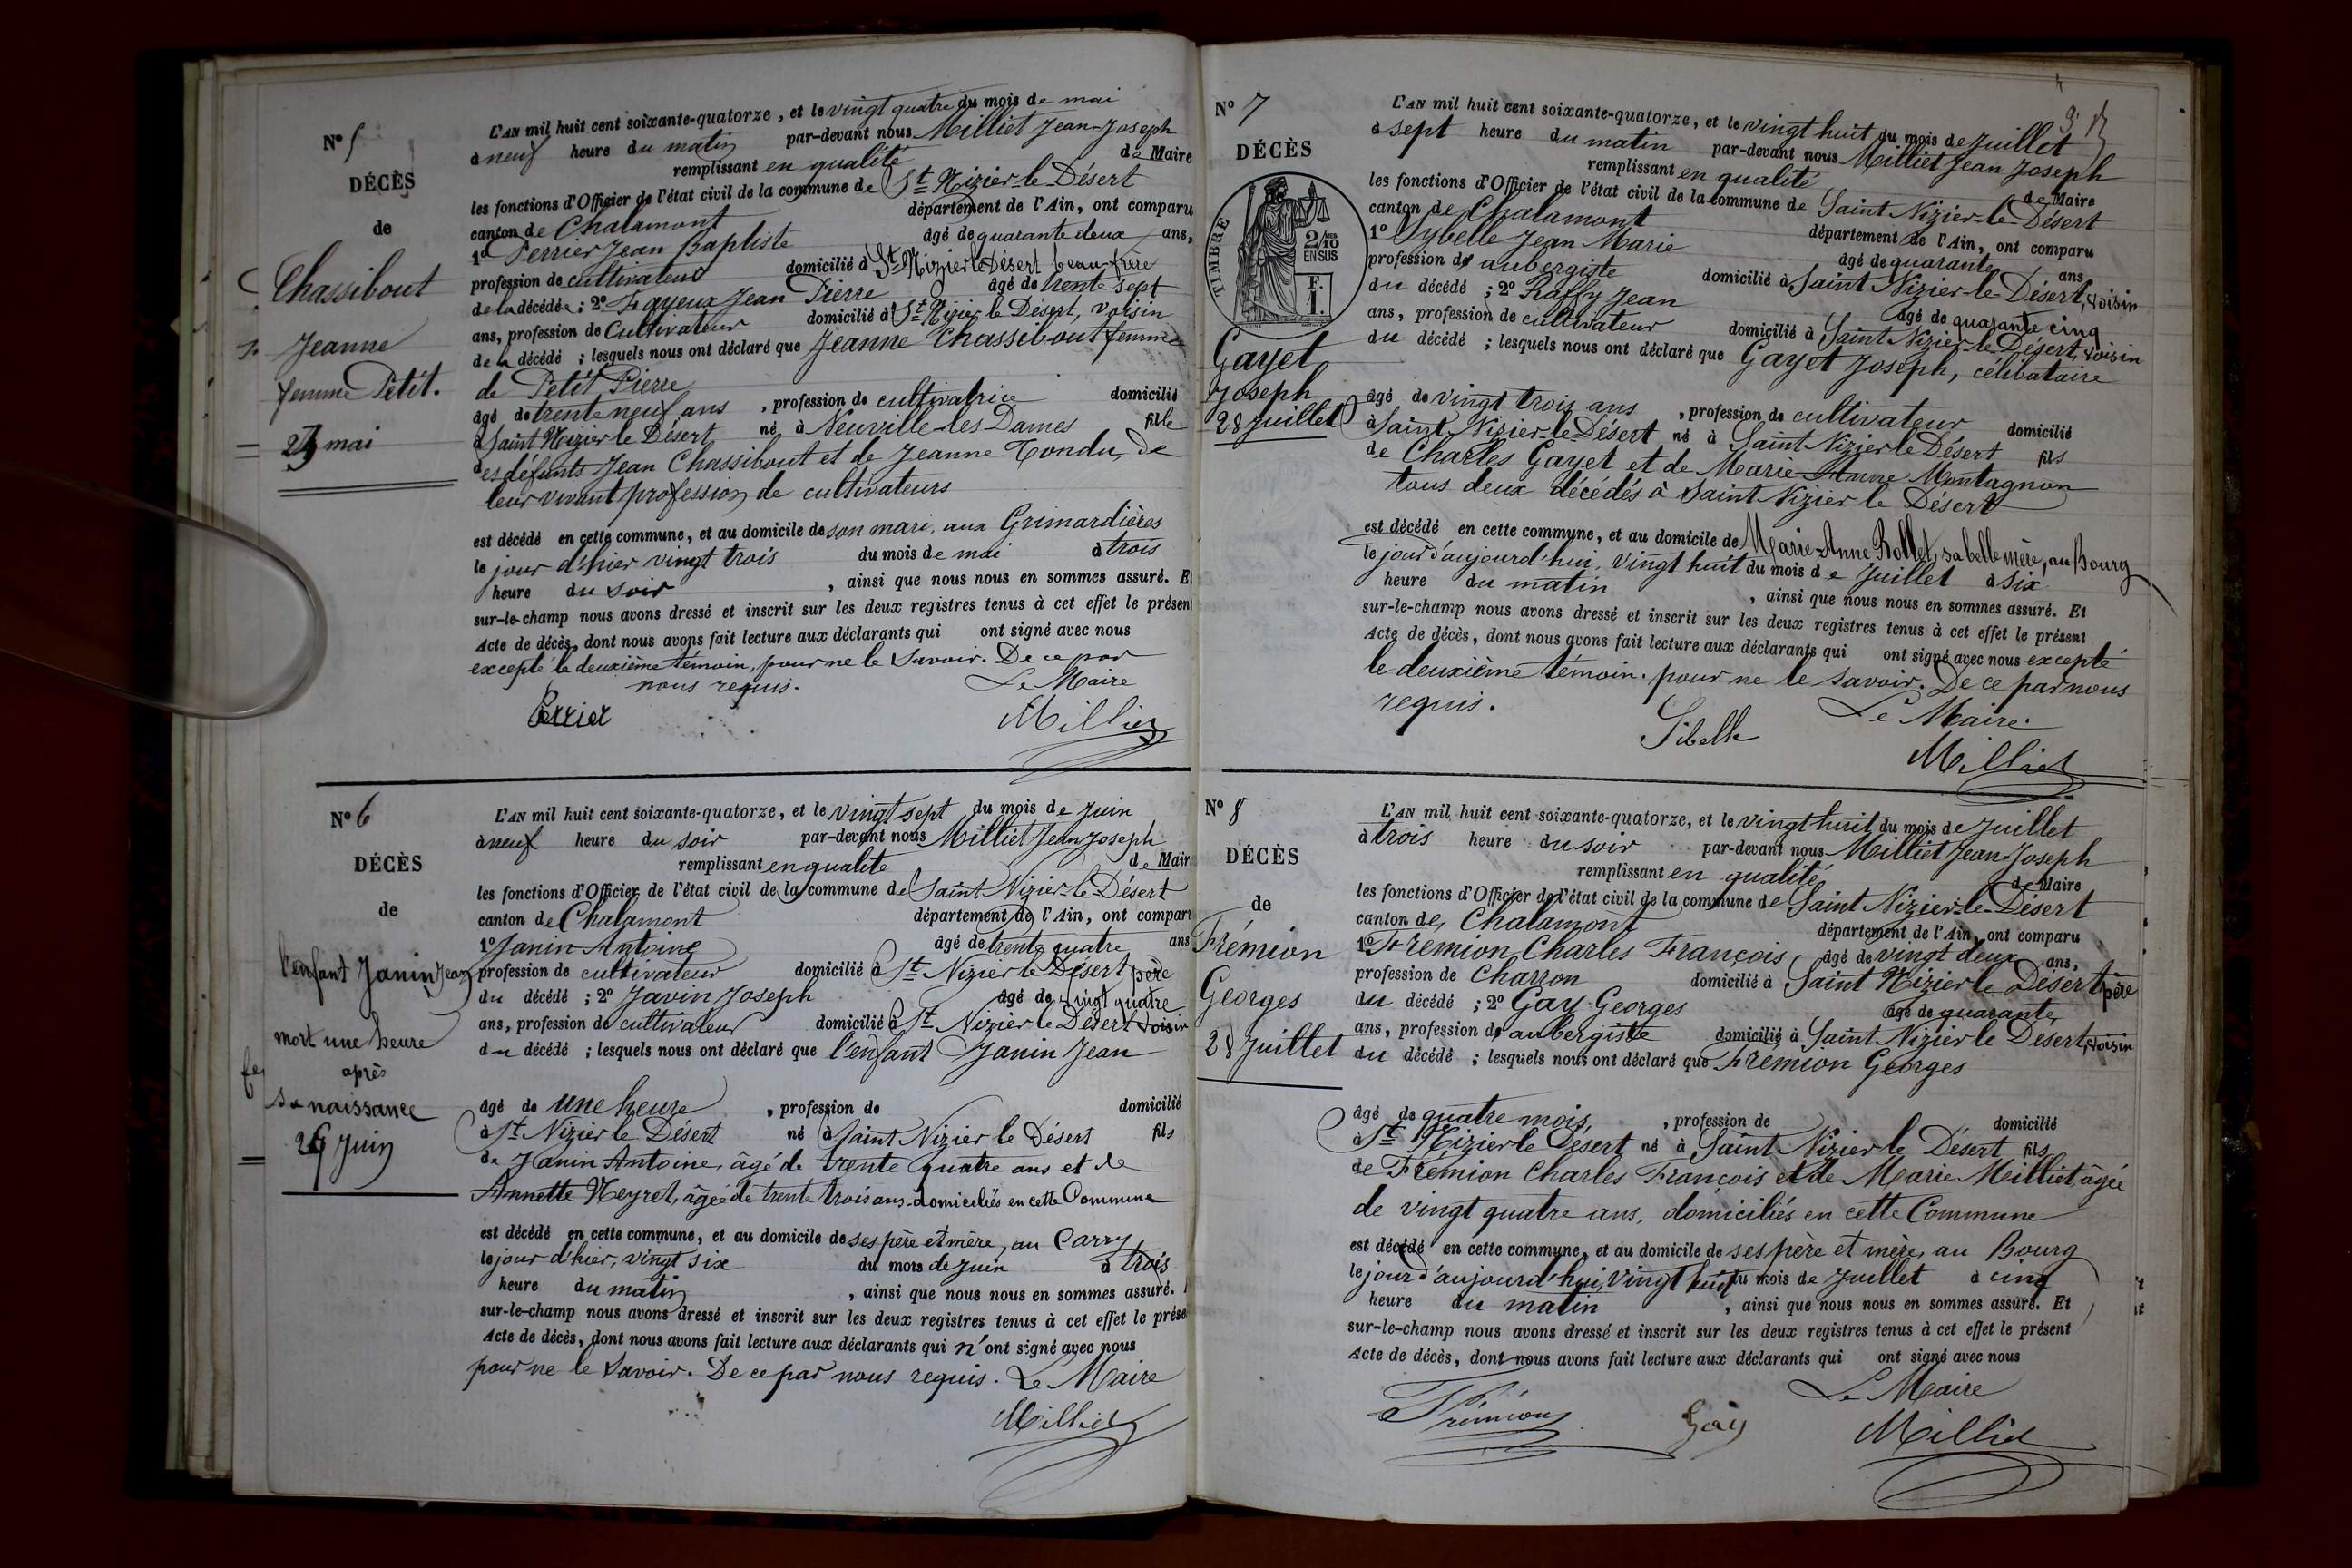 N° 5
DÉCÈS
de
Chassibout
Jeanne
femme Petit.
23 mai
L'AN mil huit cent soixante-quatorze, et le vingt quatre du mois de mai
à neuf heure du matin par-devant nous Milliet Jean-Joseph
remplissant en qualité de Maire
les fonctions d'Officier de l'état civil de la commune de St Nizier-le-Désert
canton de Chalamont département de l'Ain, ont comparu
1° Perrier Jean Baptiste âgé de quarante deux ans,
profession de cultivateur domicilié à St Nizier le Désert beau-frère
de la décédée ; 2° Fayeux Jean Pierre âgé de trente sept
ans, profession de Cultivateur domicilié à St Nizier le Désert, voisin
de la décédé ; lesquels nous ont déclaré que Jeanne Chassibout femme
de Petit Pierre
âgé de trente neuf ans , profession de cultivatrice domicilié
à Saint Nizier le Désert né à Neuville-les Dames fille
des défunts Jean Chassibout et de Jeanne Tondu, de
leur vivant profession de cultivateurs
est décédé en cette commune, et au domicile de son mari, aux Grimardières
le jour d'hier vingt trois du mois de mai à trois
heure du soir , ainsi que nous nous en sommes assuré. Et
sur-le-champ nous avons dressé et inscrit sur les deux registres tenus à cet effet le présent
Acte de décès, dont nous avons fait lecture aux déclarants qui ont signé avec nous
excepté le deuxième témoin, pour ne le savoir. De ce par
nous requis. Le Maire
Perrier Milliet
N° 6
DÉCÈS
de
l'enfant Janin Jean
mort une heure
après
sa naissance
26 Juin
L'AN mil huit cent soixante-quatorze, et le vingt sept du mois de Juin
à neuf heure du soir par-devant nous Milliet Jean Joseph
remplissant en qualité de Mair
les fonctions d'Officier de l'état civil de la commune de Saint Nizier-le-Désert
canton de Chalamont département de l'Ain, ont comparu
1° Janin Antoine âgé de trente quatre ans
profession de cultivateur domicilié à St Nizier le Désert père
du décédé ; 2° Javin Joseph âgé de vingt quatre
ans, profession de cultivateur domicilié à St Nizier le Désert voisin
du décédé ; lesquels nous ont déclaré que l'enfant Janin Jean
âgé de une heure , profession de domicilié
à St Nizier le Désert né à Saint Nizier le Désert fils
de Janin Antoine, âgé de trente quatre ans et de
Annette Neyret, âgée de trente trois ans domiciliés en cette Commune
est décédé en cette commune, et au domicile de ses père et mère, au Carry
le jour d'hier, vingt six du mois de Juin à trois
heure du matin , ainsi que nous nous en sommes assuré.
sur-le-champ nous avons dressé et inscrit sur les deux registres tenus à cet effet le prése
Acte de décès, dont nous avons fait lecture aux déclarants qui n'ont signé avec nous
pour ne le savoir. De ce par nous requis. Le Maire
Milliet
N° 7
DÉCÈS
TIMBRE
2/10 EN SUS
F. 1.
Gayet
Joseph
28 Juillet
L'AN mil huit cent soixante-quatorze, et le vingt huit du mois de Juillet
à sept heure du matin par-devant nous Milliet Jean Joseph
remplissant en qualité de Maire
les fonctions d'Officier de l'état civil de la commune de Saint Nizier-le-Désert
canton de Chalamont département de l'Ain, ont comparu
1° Sybelle Jean Marie âgé de quarante ans
profession d'aubergiste domicilié à Saint Nizier-le-Désert, voisin
du décédé ; 2° Raffy Jean âgé de quarante cinq
ans, profession de cultivateur domicilié à Saint Nizier-le-Désert, voisin
du décédé ; lesquels nous ont déclaré que Gayet Joseph, célibataire
âgé de vingt trois ans , profession de cultivateur domicilié
à Saint Nizier-le-Désert né à Saint Nizier le Désert fils
de Charles Gayet et de Marie-Anne Montagnon
tous deux décédés à Saint Nizier le Désert
est décédé en cette commune, et au domicile de Marie-Anne Rollet, sa belle mère, au Bourg
le jour d'aujourd'hui, vingt huit du mois de Juillet à six
heure du matin , ainsi que nous nous en sommes assuré. Et
sur-le-champ nous avons dressé et inscrit sur les deux registres tenus à cet effet le présent
Acte de décès, dont nous avons fait lecture aux déclarants qui ont signé avec nous excepté
le deuxième témoin. pour ne le savoir. De ce par nous
requis. Le Maire.
Sibelle Milliet
N° 8
DÉCÈS
de
Frémion
Georges
28 Juillet
L'AN mil huit cent soixante-quatorze, et le vingt huit du mois de Juillet
à trois heure du soir par-devant nous Milliet Jean-Joseph
remplissant en qualité de Maire
les fonctions d'Officier de l'état civil de la commune de Saint Nizier-le-Désert
canton de Chalamont département de l'Ain, ont comparu
1° Frémion Charles François âgé de vingt deux ans,
profession de Charron domicilié à Saint Nizier le Désert père
du décédé ; 2° Gay Georges âgé de quarante
ans, profession d'aubergiste domicilié à Saint Nizier le Désert, voisin
du décédé ; lesquels nous ont déclaré que Frémion Georges
âgé de quatre mois, , profession de domicilié
à St Nizier le Désert né à Saint Nizier le Désert fils
de Frémion Charles François et de Marie Milliet, âgée
de vingt quatre ans, domiciliés en cette Commune
est décédé en cette commune, et au domicile de ses père et mère, au Bourg
le jour d'aujourd'hui, vingt huit du mois de Juillet à cinq
heure du matin , ainsi que nous nous en sommes assuré. Et
sur-le-champ nous avons dressé et inscrit sur les deux registres tenus à cet effet le présent
Acte de décès, dont nous avons fait lecture aux déclarants qui ont signé avec nous
Le Maire
Frémion Gay Milliet